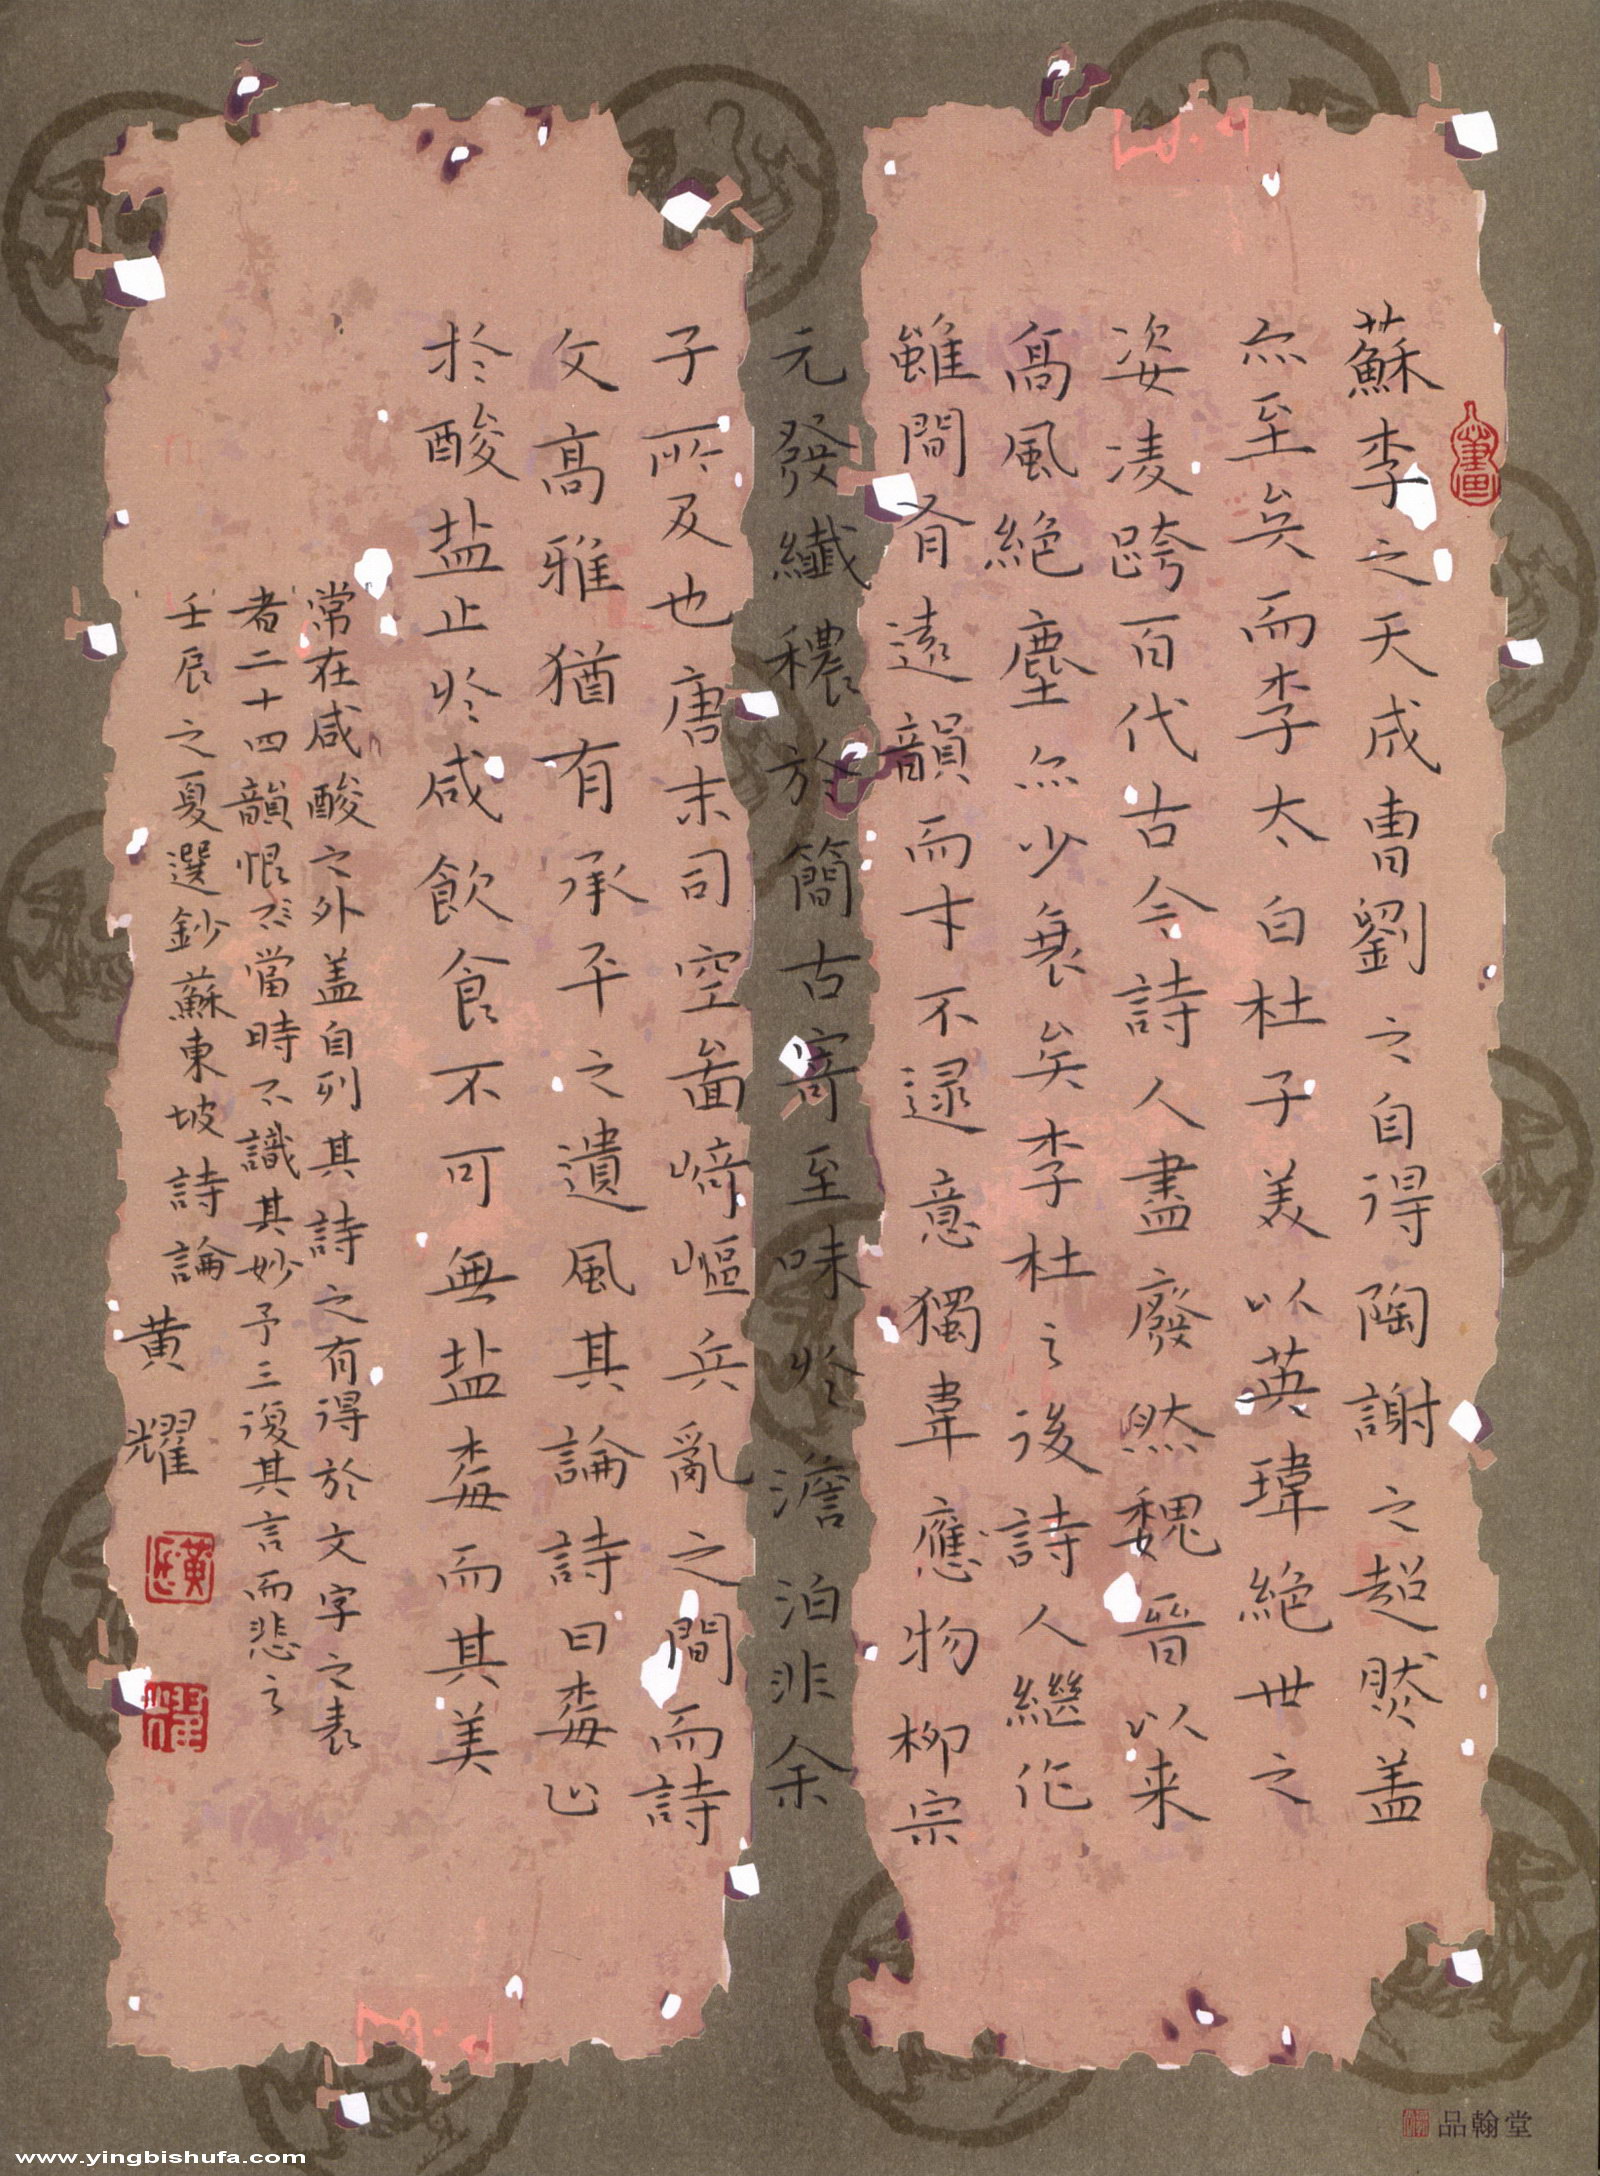 蘇李之天成曹劉之自得陶謝之超然盖
亦至矣而李太白杜子美以英瑋絶世之
姿凌跨百代古今詩人盡廢然魏晉以来
高風絶塵亦少衰矣李杜之後詩人繼作
雖間有遠韻而才不逮意獨韋應物柳宗
元發纖穠於簡古寄至味於澹泊非余
子所及也唐末司空啚崎嶇兵亂之間而詩
文高雅猶有承平之遺風其論詩曰梅止
於酸盐止於咸飲食不可無盐梅而其美
常在咸酸之外盖自列其詩之有得於文字之表
者二十四韻恨不當時不識其妙予三復其言而悲之
壬辰之夏選鈔蘇東坡詩論 黄耀
品翰堂
www.yingbishufa.com